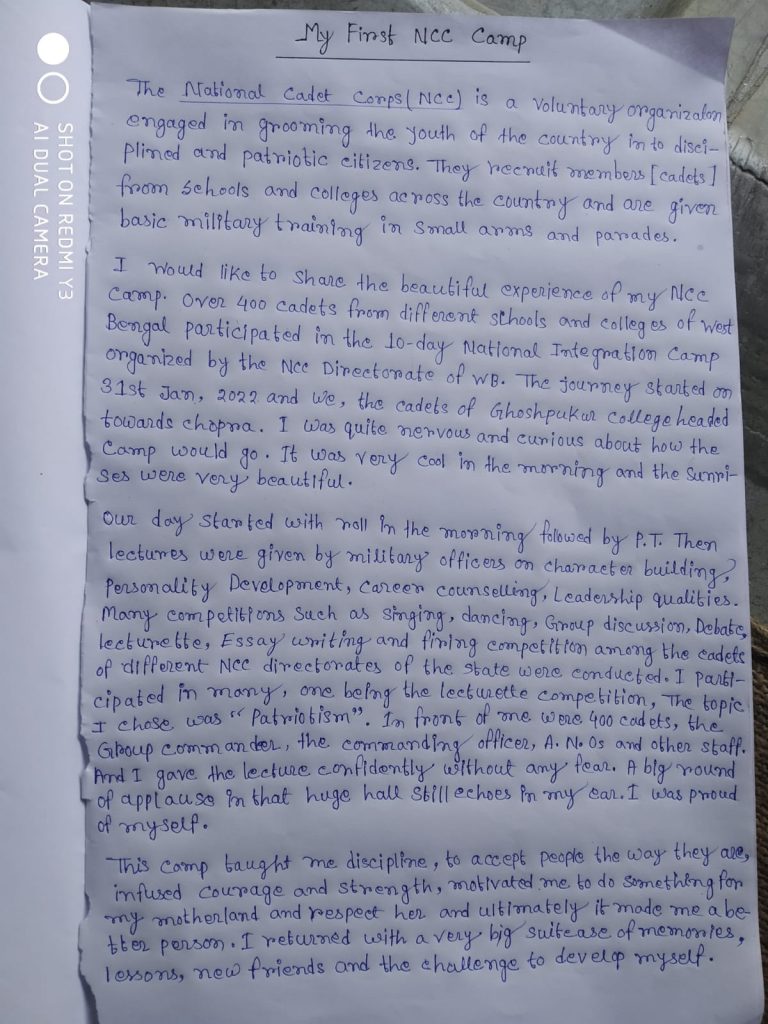 My First NCC Camp
The National Cadet Corps (NCC) is a voluntary organizaton
engaged in grooming the youth of the country in to disci-
plined and patriotic citizens. They recruit members [cadets]
from schools and colleges across the country and are given
basic military training in small arms and parades.
I would like to share the beautiful experience of my NCC
Camp. Over 400 cadets from different schools and colleges of West
Bengal participated in the 10-day National Integration Camp
organized by the NCC Directorate of WB. The journey started on
31st Jan, 2022 and we, the cadets of Ghoshpukur college headed
towards chopra. I was quite nervous and curious about how the
Camp would go. It was very cool in the morning and the sunri-
ses were very beautiful.
Our day started with roll in the morning followed by P.T. Then
lectures were given by military officers on character building,
Personality Development, Career counselling, Leadership qualities.
Many competitions such as singing, dancing, Group discussion, Debate,
lecturette, Essay writing and firing competition among the cadets
of different NCC directorates of the state were conducted. I parti-
cipated in many, one being the lecturette competition, The topic
I chose was "Patriotism". In front of me were 400 cadets, the
Group commander, the commanding officer, A.N.Os and other staff.
And I gave the lecture confidently without any fear. A big round
of applause in that huge hall still echoes in my ear. I was proud
of myself.
This camp taught me discipline, to accept people the way they are,
infused courage and strength, motivated me to do something for
my motherland and respect her and ultimately it made me a be-
tter person. I returned with a very big suitcase of memories,
lessons, new friends and the challenge to develop myself.
SHOT ON REDMI Y3
AI DUAL CAMERA